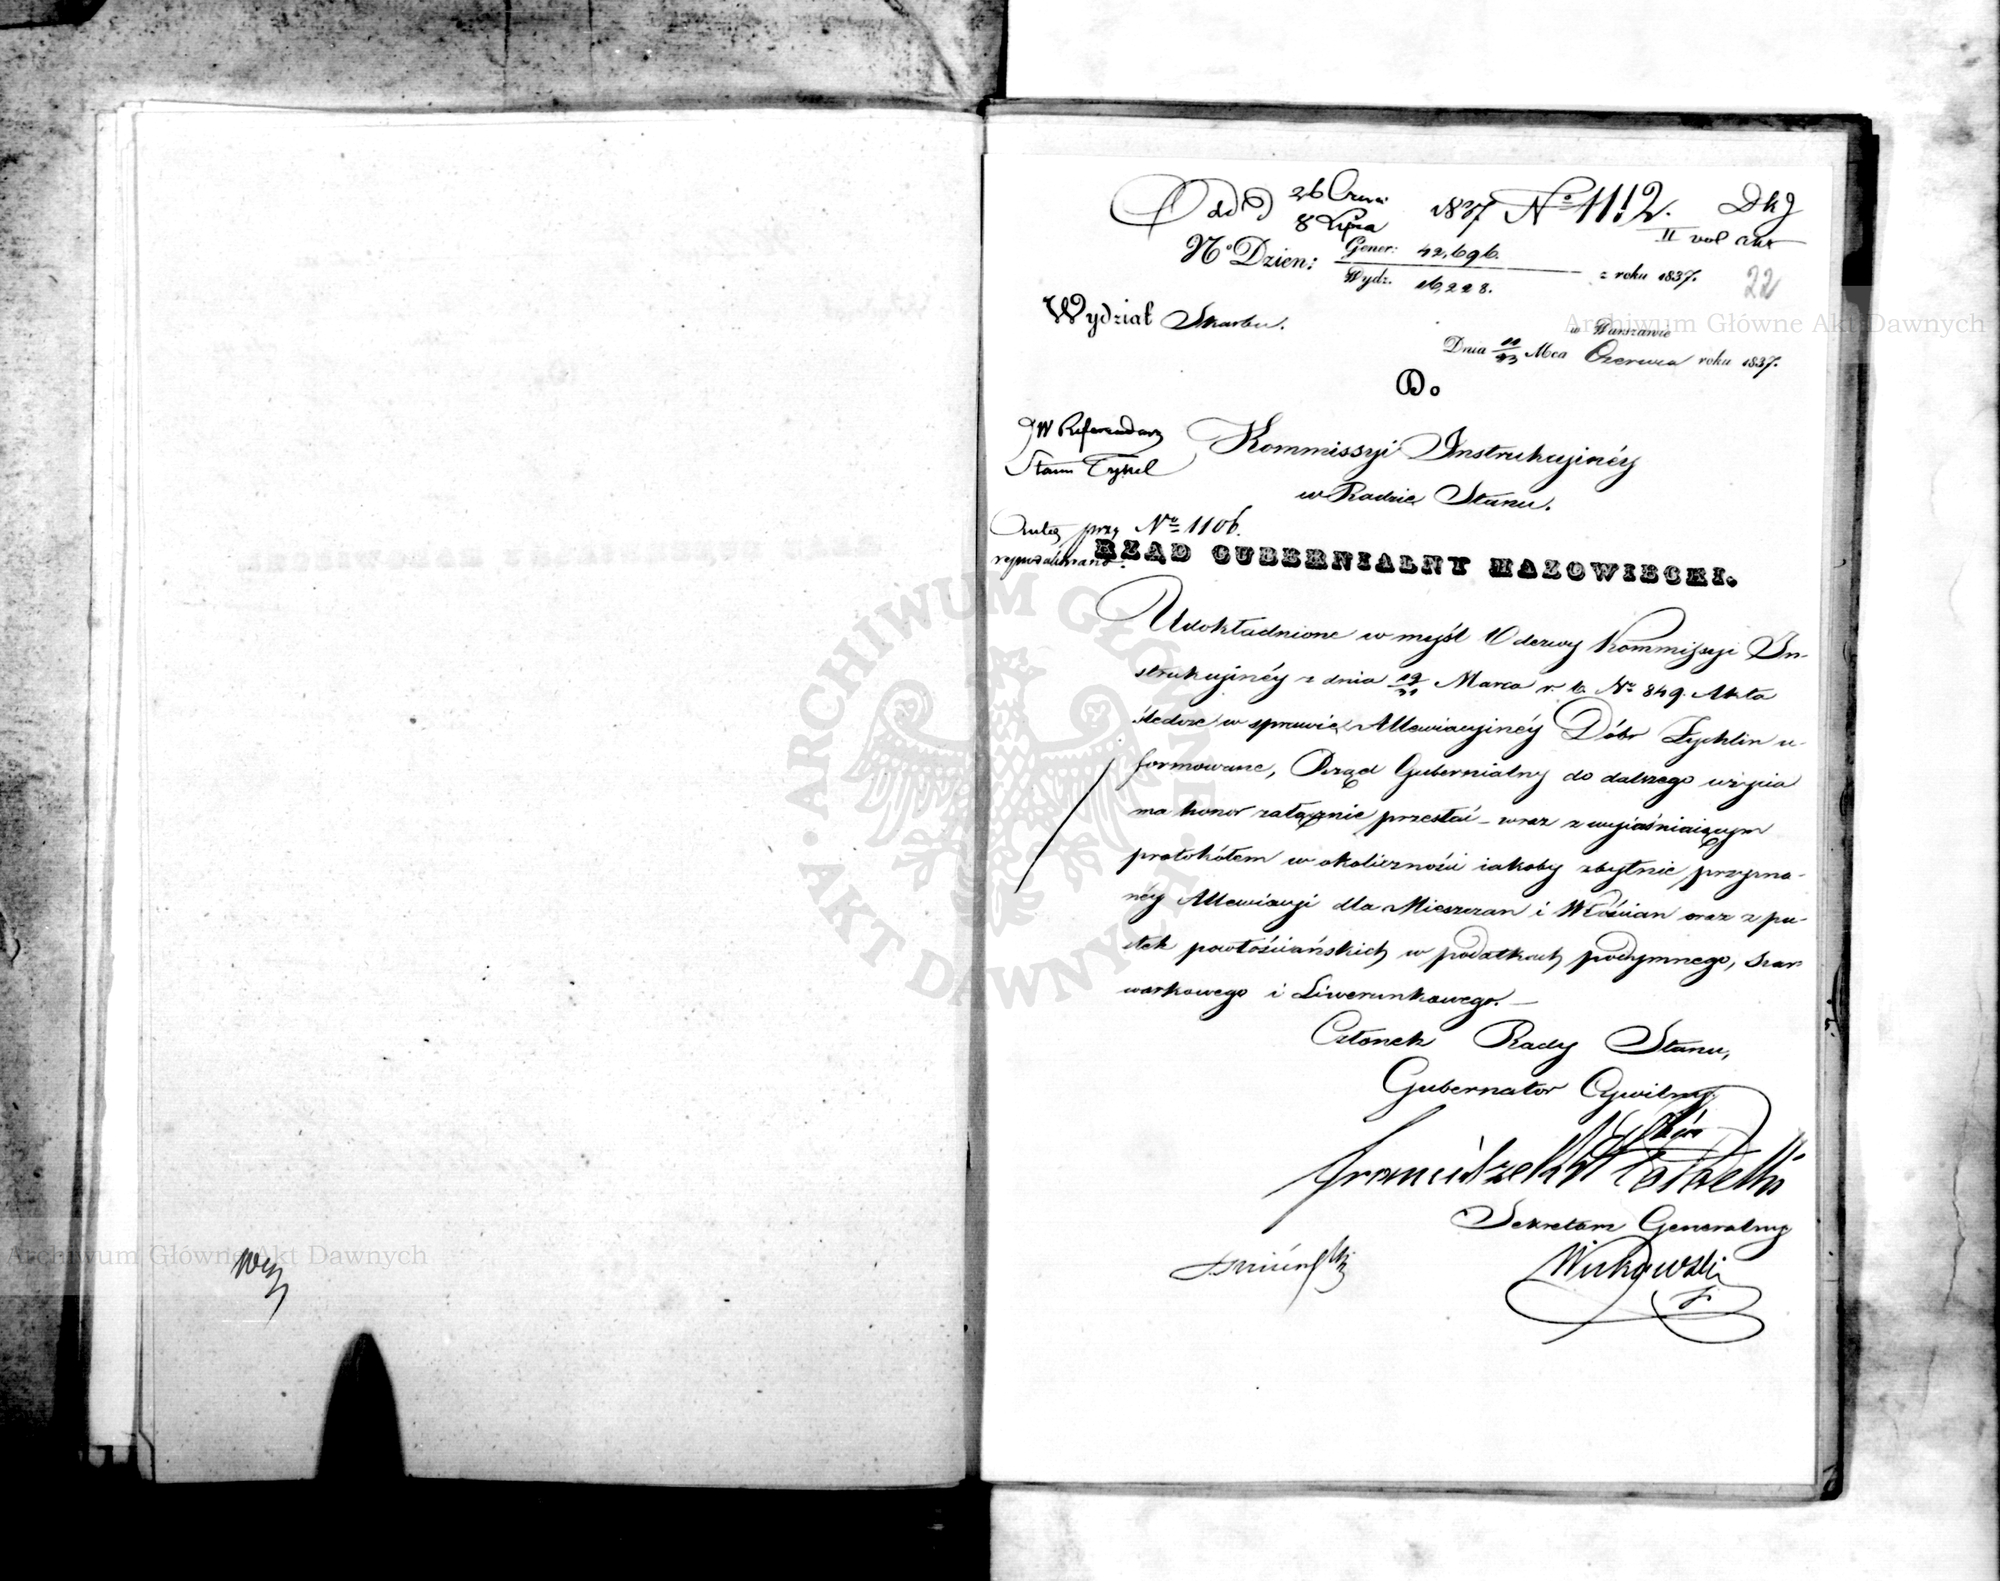 Odd 26 Czerw: 8 Lipca 1837 No 1112. DkJ
II vol akt
No Dzien: Gener: 42,696. Wydz. 16,228. z roku 1837.
22
Wydział Skarbu.
w Warszawie
Dnia 11/23 Mca Czerwca roku 1837.
Do
JW Referendarz
Stanu
Kommissyi Instrukcyinéy
w Radzie Stanu.
przy No 1106.
RZĄD GUBERNIALNY MAZOWIECKI.
Udokładnione w myśl Odezwy Kommissyi In-
strukcyinéy z dnia 19/31 Marca r. b. No 849. Akta
śledcze w sprawie Allewiacyinéy Dóbr Żychlin u-
formowane, Rząd Gubernialny do dalszego użycia
ma honor załącznie przesłać – wraz z wyiaśniaiącym
protokółem w okoliczności iakoby zbytnie przyzna-
néy Allewiacyi dla Mieszczan i Włościan oraz z pu-
stek powłościańskich w podatkach podymnego, Szar
warkowego i Liwerunkowego. –
Członek Rady Stanu,
Gubernator Cywilny
Franciszek
Sekretarz Generalny
Archiwum Główne Akt Dawnych
Archiwum Główne Akt Dawnych
ARCHIWUM GŁÓWNE · AKT DAWNYCH ·